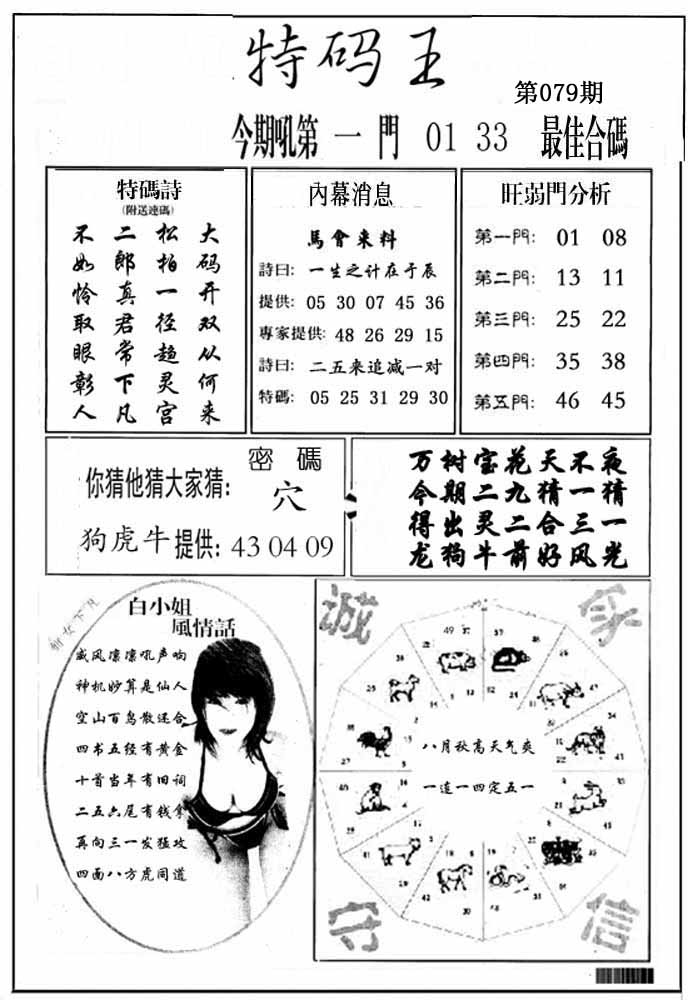 特码王
第079期
今期吼第一門 01 33 最佳合碼
特碼詩
(附送連碼)
大码开双从何来
松柏一径趋灵宫
二郎真君常下凡
不如怜取眼彰人
內幕消息
馬會来料
詩曰: 一生之计在于辰
提供: 05 30 07 45 36
專家提供: 48 26 29 15
詩曰: 二五来追减一对
特碼: 05 25 31 29 30
旺弱門分析
第一門: 01 08
第二門: 13 11
第三門: 25 22
第四門: 35 38
第五門: 46 45
密碼
你猜他猜大家猜: 穴
狗虎牛提供: 43 04 09
万树宝花天不夜
今期二九猜一猜
得出灵二合三一
龙狗牛前好风光
白小姐
風情話
威风凛凛吼声响
神机妙算是仙人
空山百鸟散还合
四书五经有黄金
十首当年有旧词
二五六尾有钱拿
再向三一发猛攻
四面八方虎同道
誠
守
信
八月秋高天气爽
一连一四定五一